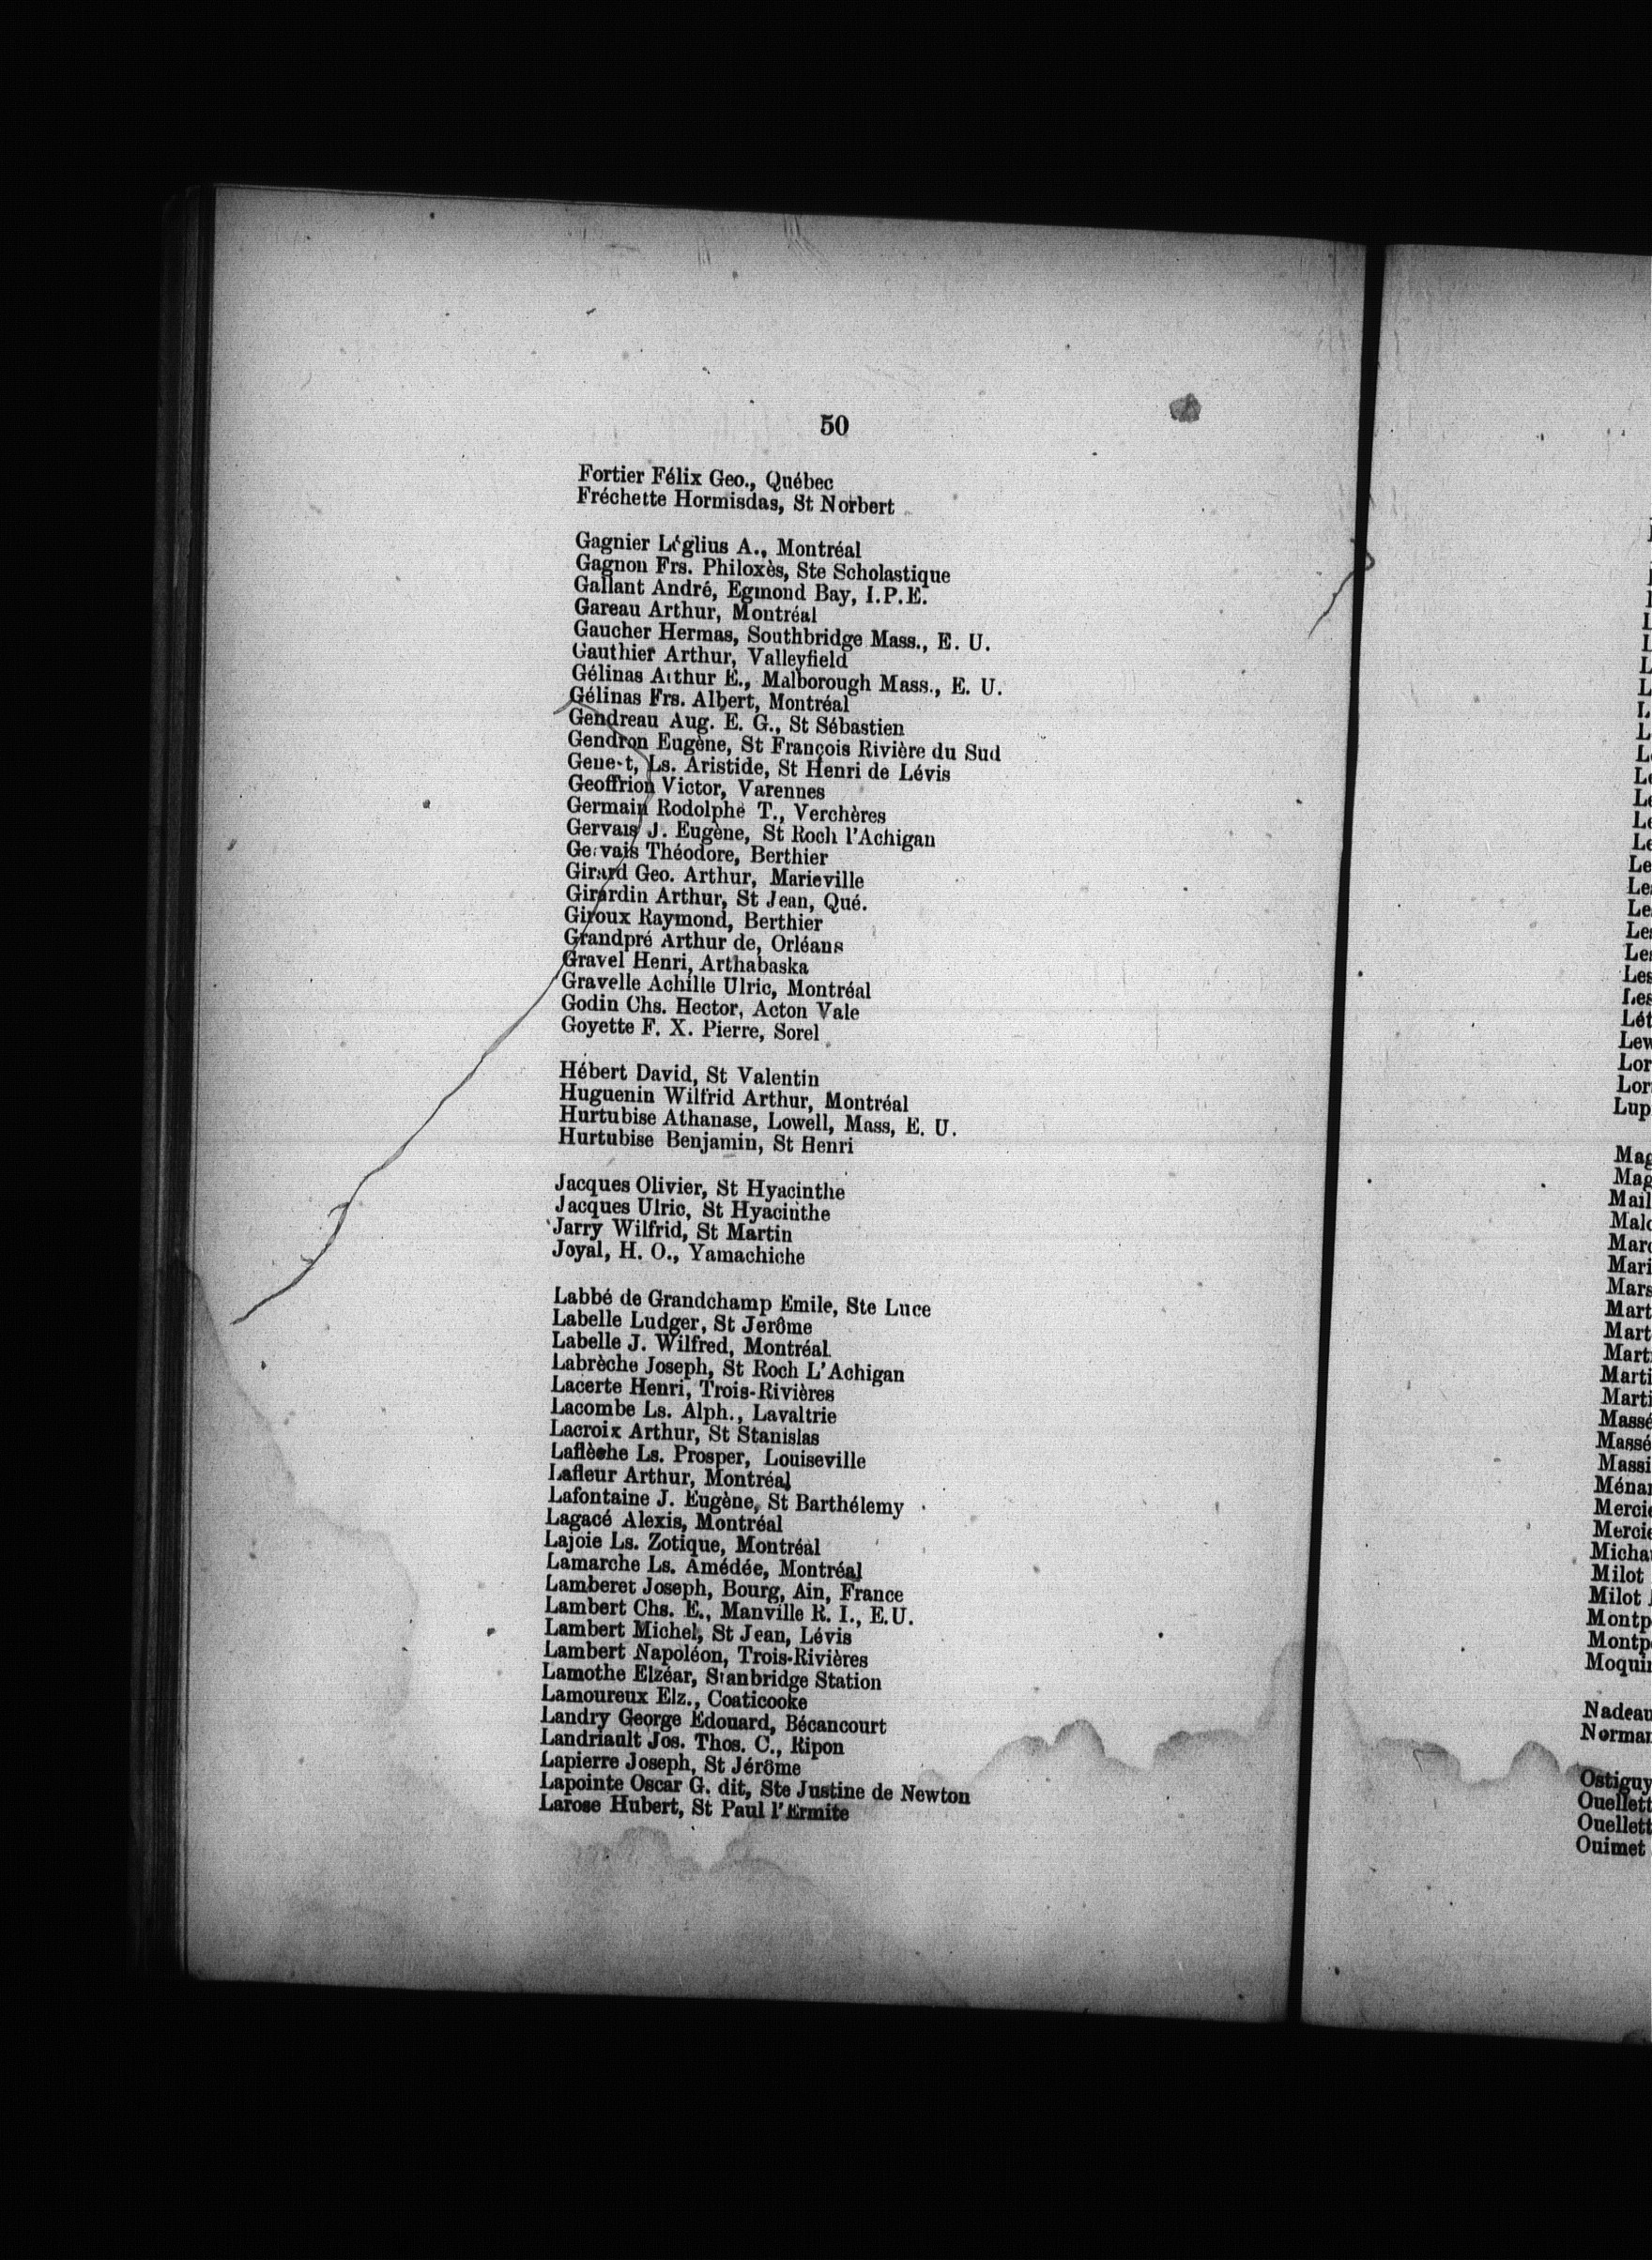 50
Fortier Félix Geo., Québec
Fréchette Hormisdas, St Norbert
Gagnier Léglius A., Montréal
Gagnon Frs. Philoxès, Ste Scholastique
Gallant André, Egmond Bay, I.P.E.
Gareau Arthur, Montréal
Gaucher Hermas, Southbridge Mass., E. U.
Gauthier Arthur, Valleyfield
Gélinas Arthur E., Malborough Mass., E. U.
Gélinas Frs. Albert, Montréal
Gendreau Aug. E. G., St Sébastien
Gendron Eugène, St François Rivière du Sud
Genest, Ls. Aristide, St Henri de Lévis
Geoffrion Victor, Varennes
Germain Rodolphe T., Verchères
Gervais J. Eugène, St Roch l'Achigan
Gervais Théodore, Berthier
Girard Geo. Arthur, Marieville
Girardin Arthur, St Jean, Qué.
Giroux Raymond, Berthier
Grandpré Arthur de, Orléans
Gravel Henri, Arthabaska
Gravelle Achille Ulric, Montréal
Godin Chs. Hector, Acton Vale
Goyette F. X. Pierre, Sorel
Hébert David, St Valentin
Huguenin Wilfrid Arthur, Montréal
Hurtubise Athanase, Lowell, Mass, E. U.
Hurtubise Benjamin, St Henri
Jacques Olivier, St Hyacinthe
Jacques Ulric, St Hyacinthe
Jarry Wilfrid, St Martin
Joyal, H. O., Yamachiche
Labbé de Grandchamp Emile, Ste Luce
Labelle Ludger, St Jerôme
Labelle J. Wilfred, Montréal
Labrèche Joseph, St Roch L'Achigan
Lacerte Henri, Trois-Rivières
Lacombe Ls. Alph., Lavaltrie
Lacroix Arthur, St Stanislas
Laflèche Ls. Prosper, Louiseville
Lafleur Arthur, Montréal
Lafontaine J. Eugène, St Barthélemy
Lagacé Alexis, Montréal
Lajoie Ls. Zotique, Montréal
Lamarche Ls. Amédée, Montréal
Lamberet Joseph, Bourg, Ain, France
Lambert Chs. E., Manville R. I., E.U.
Lambert Michel, St Jean, Lévis
Lambert Napoléon, Trois-Rivières
Lamothe Elzéar, Stanbridge Station
Lamoureux Elz., Coaticooke
Landry George Edouard, Bécancourt
Landriault Jos. Thos. C., Ripon
Lapierre Joseph, St Jérôme
Lapointe Oscar G. dit, Ste Justine de Newton
Larose Hubert, St Paul l'Ermite
Milot
Milot
Ouimet